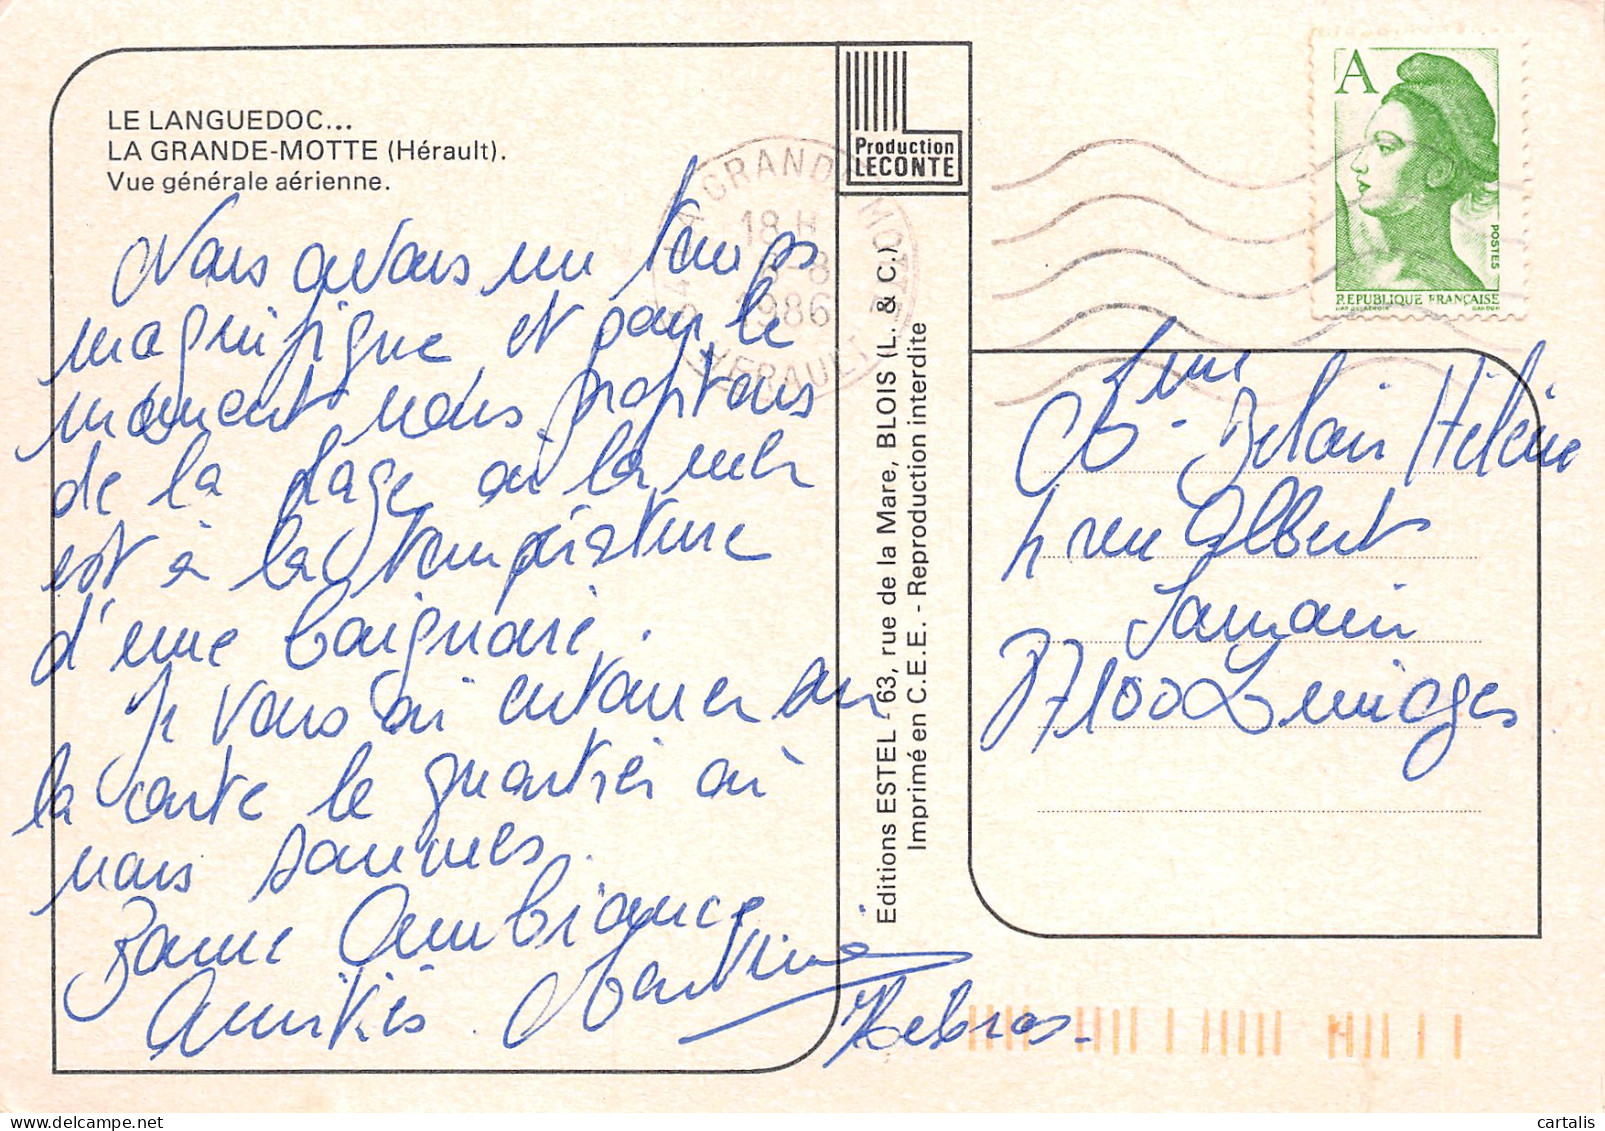 LE LANGUEDOC...
LA GRANDE-MOTTE (Hérault).
Vue générale aérienne.
Nous avons un temps
magnifique et pour le
moment nous profitons
de la plage où la mer
est à la température
d'une baignoire.
Je vous ai entourer sur
la carte le quartier où
nous sommes.
Bonne Ambiance
Amitiés. Martine
Production
LECONTE
Editions ESTEL - 63, rue de la Mare, BLOIS (L. & C.)
Imprimé en C.E.E. - Reproduction interdite
LA GRANDE MOTTE
18 H
-8
1986
HERAULT
A
POSTES
REPUBLIQUE FRANÇAISE
GANDON
Hélène
rue Albert
Samain
87100 Limoges
cartalis